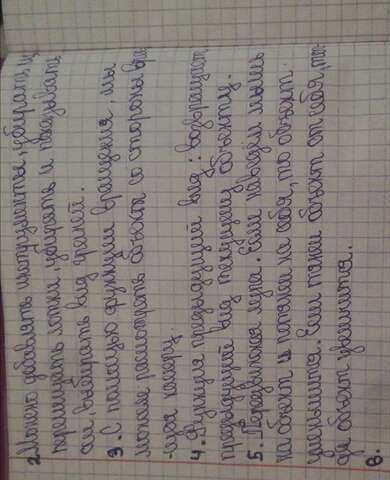 2. Можно добавлять инструменты, убирать и
перемещать лотки, убирать и показывать
ам, выбирать вид граней.
3. С помощью функции вращения, мы
можем рассмотреть объект со стороны
каждую.
4. Функция предыдущий вид: возвращает
предыдущий вид текущему объекту.
5. Передвижная лупа. Если наводим мышь
на объект и потянем на себя, то объект
уменьшится. Если тянем объект от себя, то-
гда объект увеличится.
6.